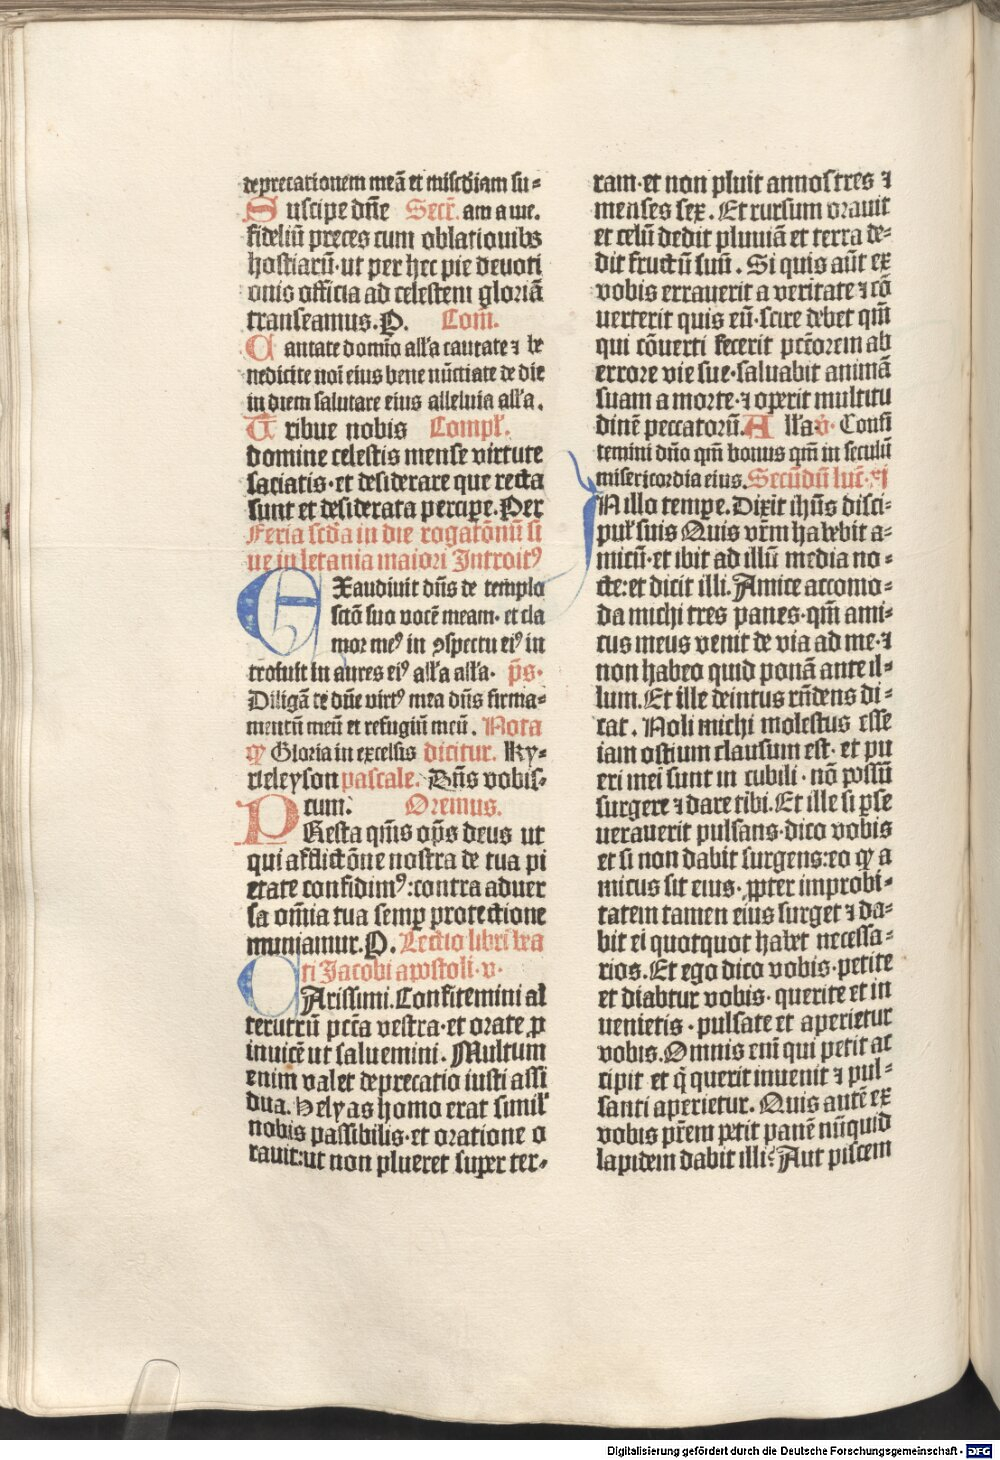 deprecationem meā et miscdiam su=
Suscipe dn̄e Secr̄. am a me.
fideliū preces cum oblationibs
hostiarū·ut per hec pie devoti
onis officia ad celestem gloriā
transeamus.P. Com̄.
Cantate domīo all'a cantate ⁊ be
nedicite noī eius bene nūctiate de die
in diem salutare eius alleluia all'a.
Tribue nobis Compl'.
domine celestis mense virtute
saciatis·et desiderare que recta
sunt et desiderata percipe.Per
Feria scd̄a in die rogatōnū si
ue in letania maiori Introitꝰ
EXaudiuit dn̄s de templo
sctō suo vocē meam·et cla
mor meꝰ in ꝯspectu eiꝰ in
troiuit in aures eiꝰ all'a all'a· p̄s·
Diligā te dn̄e virtꝰ mea dn̄s firma=
mentū meū et refugiū meū. Nota
qꝫ Gloria in excelsis dicitur. Ky=
rieleyson pascale. Dn̄s vobis=
cum: Oremus.
PResta qm̄s op̄s deus ut
qui afflictōne nostra de tua pi
etate confidimꝰ:contra aduer
sa om̄ia tua semꝑ protectione
muniamur.P. Lectio libri bea
ti Jacobi apostoli·v·
CArissimi.Confitemini al
terutrū pctā vestra·et orate ꝓ
inuicē ut saluemini. Multum
enim valet deprecatio iusti assi
dua. Helyas homo erat simil'
nobis passibilis·et oratione o
rauit:ut non plueret super ter=
ram·et non pluit annos tres ⁊
menses sex. Et rursum orauit
et celū dedit pluuiā et terra de=
dit fructū suū. Si quis aūt ex
vobis errauerit a veritate ⁊ cō
uerterit quis eū·scire debet qm̄
qui cōuerti fecerit pctōrem ab
errore vie sue·saluabit animā
suam a morte·⁊ operit multitu
dinē peccatorū. All'a·v̄· Confi
temini dn̄o qm̄ bonus qm̄ in seculū
misericordia eius. Secūdū luc̄·xi
IN illo tempe. Dixit ihūs disci=
pul' suis Quis vr̄m habebit a=
micū·et ibit ad illū media no=
cte:et dicit illi. Amice accomo=
da michi tres panes·qm̄ ami=
cus meus venit de via ad me·⁊
non habeo quid ponā ante il=
lum. Et ille deintus rn̄dens di=
cat. Noli michi molestus esse
iam ostium clausum est· et pu
eri mei sunt in cubili·nō possū
surgere ⁊ dare tibi. Et ille si ꝑse
uerauerit pulsans·dico vobis
et si non dabit surgens:eo qꝫ a
micus sit eius·ꝓpter improbi=
tatem tamen eius surget ⁊ da=
bit ei quotquot habet necessa=
rios. Et ego dico vobis·petite
et diabtur vobis·querite et in
uenietis·pulsate et aperietur
vobis. Omnis enī qui petit ac
cipit et q̄ querit inuenit ⁊ pul=
santi aperietur. Quis autē ex
vobis pr̄em petit panē nūquid
lapidem dabit illi? Aut piscem
Digitalisierung gefördert durch die Deutsche Forschungsgemeinschaft - DFG